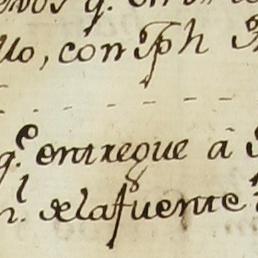 q.
llo, con Jph
q.e entregue a
n.l delafuente